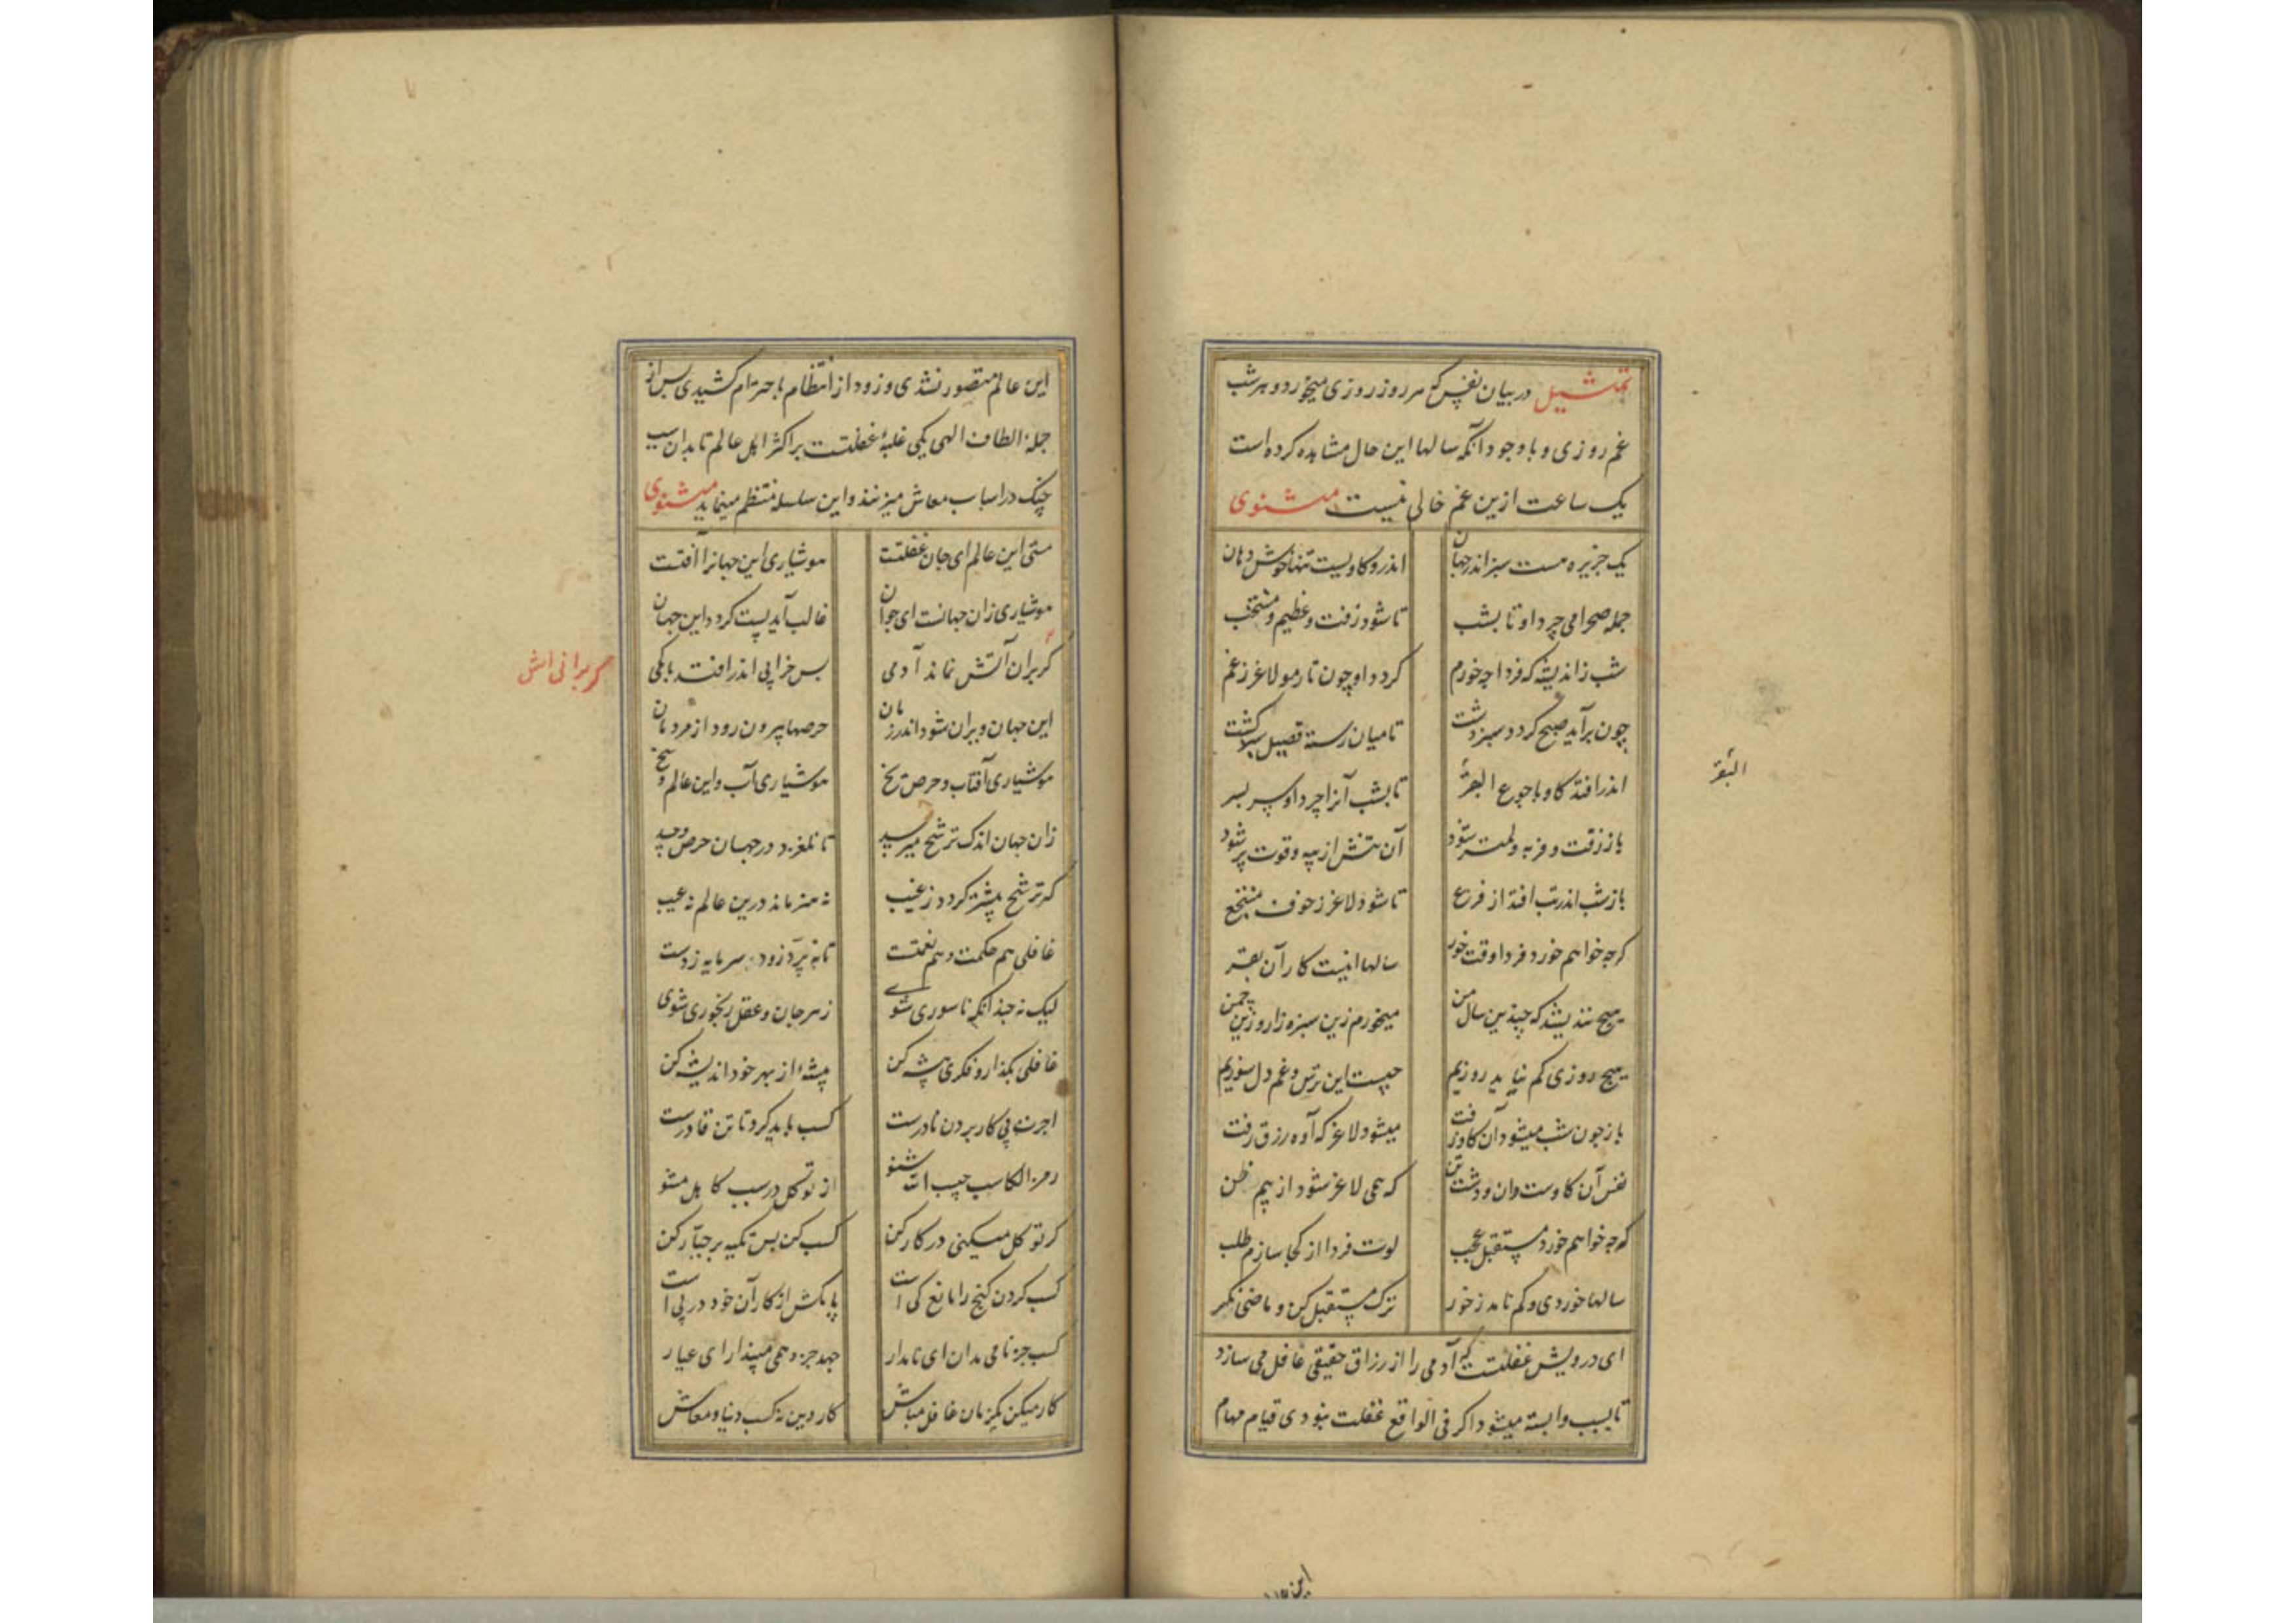 تمثیل در بیان نفس که هر روز روزی میخورد و هر شب
غم روزی و با وجود آنکه سالها این حال مشاهده کرده است
یک ساعت ازین غم خالی نیست مثنوی
یک جزیره هست سبز اندر جهان اندرو کاویست تنها خوش دهان
جمله صحرا می چرد او تا بشب تا شود زفت و عظیم و منتخب
شب ز اندیشه که فردا چه خورم کردد او چون تار مو لاغر ز غم
چون برآید صبح کردد سبز دشت تا میان رسته قصیل سبز کشت
اندر افتد کاو با جوع البقر تا بشب آنرا چرد او سر بسر
باز زفت و فربه و لمتر شود آن تنش از پیه و قوت پر شود
باز شب اندر تب افتد از فزع تا شود لاغر ز خوف منتجع
که چه خواهم خورد فردا وقت خور سالها اینست کار آن بقر
هیچ نندیشد که چندین سال من میخورم زین سبزه زار و زین چمن
هیچ روزی کم نیاید روزیم چیست این ترس و غم دل سوزیم
باز چون شب میشود آن کاو زفت میشود لاغر که آوه رزق رفت
نفس آن کاوست وان دشت تن که همی لاغر شود از بیم ظن
که چه خواهم خورد مستقبل عجب لوت فردا از کجا سازم طلب
سالها خوردی و کم نامد ز خور ترک مستقبل کن و ماضی نکر
ای درویش غفلتست که آدمی را از رزاق حقیقی غافل می سازد
تا بسبب وابسته میشود اکر فی الواقع غفلت نبودی قیام مهام
البقر
این عالم متصور نشدی و زود از انتظام باخترام کشیدی پس از
جمله الطاف الهی یکی غلبۀ غفلتست بر اکثر اهل عالم تا بدان سبب
چنک در اسباب معاش میزنند و این سلسله منتظم مینماید مثنوی
ستی این عالم ای جان غفلتست هوشیاری این جهانرا آفتست
هوشیاری زان جهانست ای جوان غالب آید پست کردد این جهان
کر بران آتش نماند آدمی بس خرابی اندر افتد باکمی
این جهان ویران شود اندر زمان حرصها بیرون رود از مردمان
هوشیاری آفتاب و حرص یخ هوشیاری آب و این عالم وسخ
زان جهان اندک ترشح میرسد تا نلغزد در جهان حرص و حسد
کر ترشح بیشتر کردد ز غیب نه هنر ماند درین عالم نه عیب
غافلی هم حکمت و هم نعمتست تا نپرد زود سرمایه ز دست
لیک نه چندانکه ناسوری شوی زهر جان و عقل رنجوری شوی
غافلی بکذار و فکری پیشه کن پیشۀ از بهر خود اندیشه کن
اجر نه پی کار بردن نادرست کسب باید کرد تا تن قادرست
رمز الکاسب حبیب الله شنو از توکل در سبب کاهل مشو
کر توکل میکنی در کار کن کسب کن پس تکیه بر جبّار کن
کسب کردن کنج را مانع کی است پا مکش از کار آن خود در پی است
کسب جز نامی مدان ای نامدار جهد جز وهمی مپندار ای عیار
کار میکن یکزمان غافل مباش کار دین نه کسب دنیا و معاش
کر برانی اتش
این